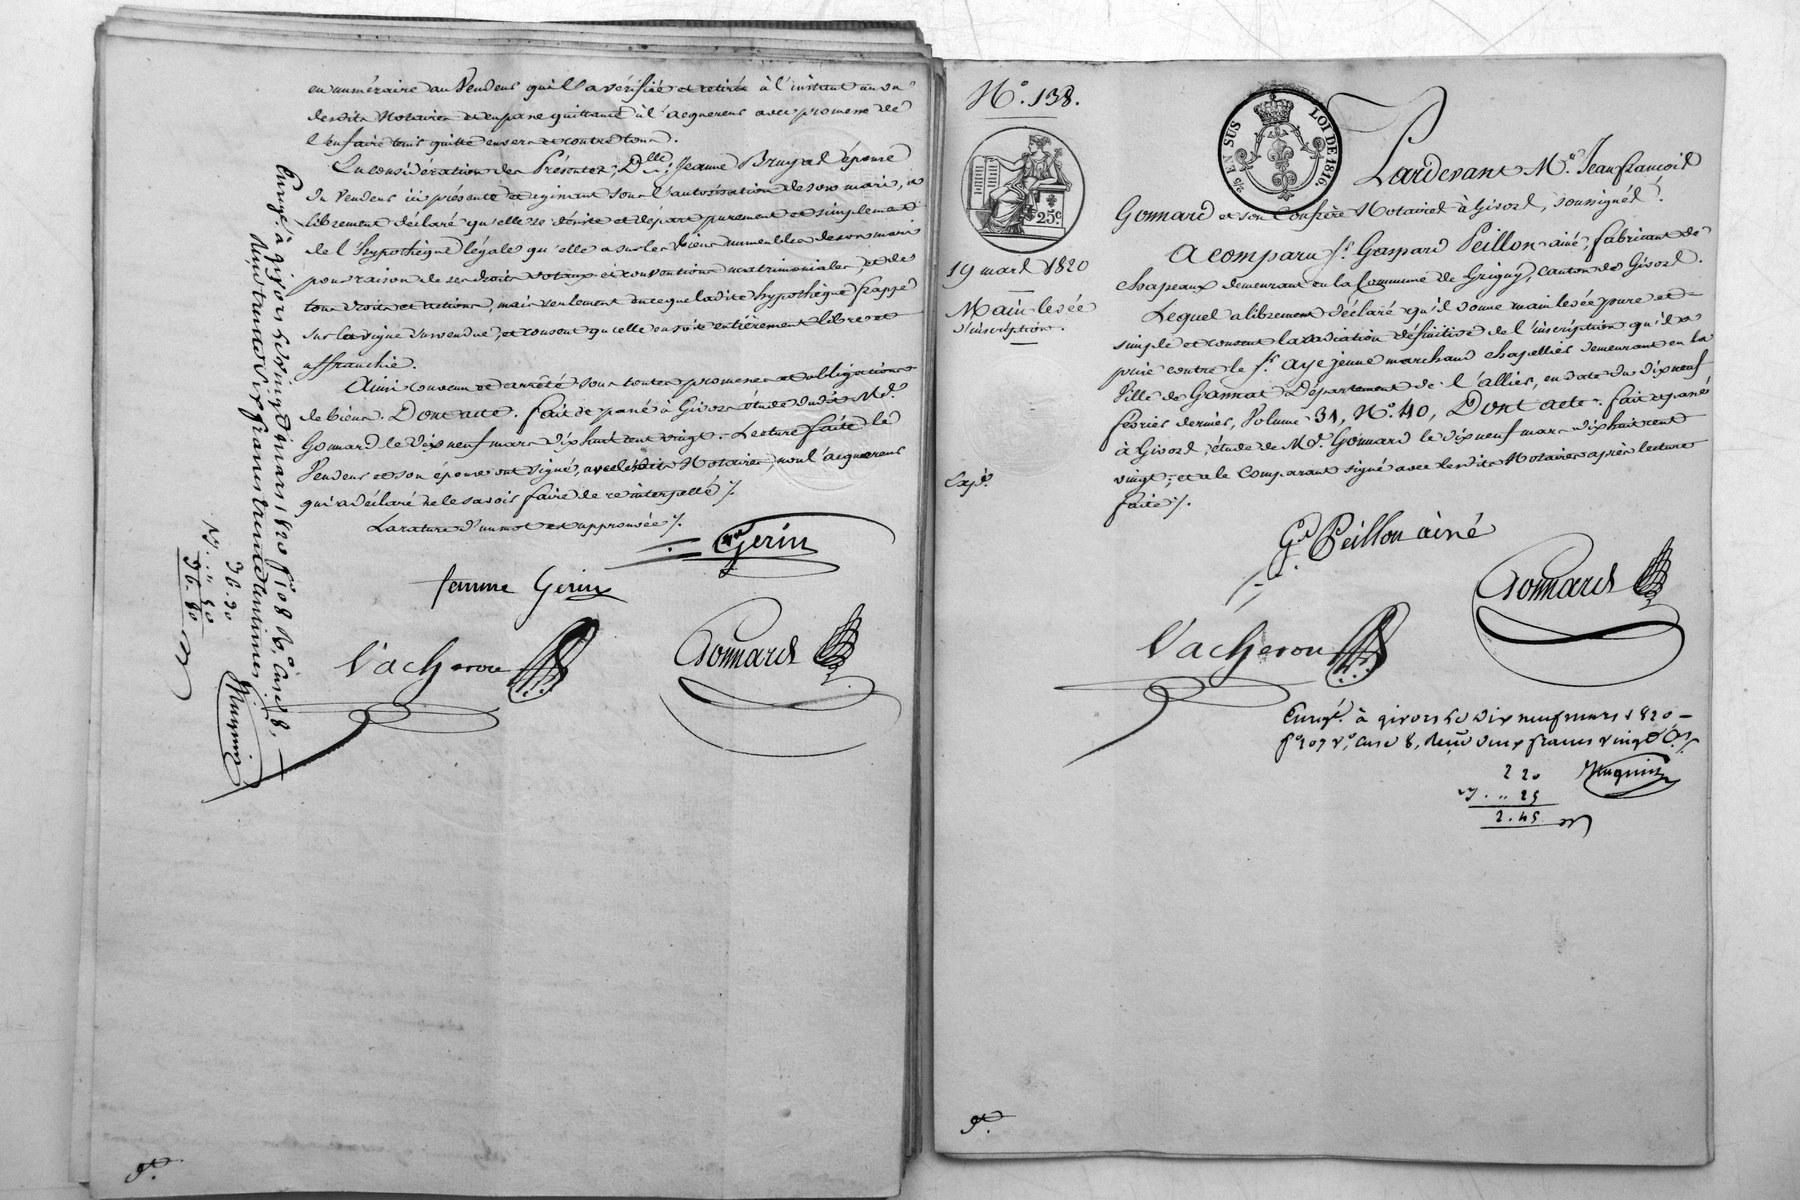 en numéraire au Vendeur qui l'a vérifiée et retirée à l'instant au vu
desdits Notaires et en passe quittance à l'acquereur avec promesse de
l'en faire tenir quitte envers et contre tous.
En considération des Présentes, Dlle. Jeanne Bruyas épouse
du Vendeur ici présente et agissant sous l'autorisation de son mari, a
librement déclaré qu'elle se désiste et départ purement et simplement
de l'hypothèque légale qu'elle a sur les biens immeubles de son mari
pour raison de ses droits dotaux et conventions matrimoniales, et de
tous droits et actions, mais seulement en ce que ladite hypothèque frappe
sur la vigne survendue, et consent qu'elle en soit entièrement libre et
affranchie.
Ainsi convenu et arrêté sous toutes promesses et obligations
de biens. Dont acte. fait et passé à Givors étude dudit Me.
Gonnard le dix neuf mars dix huit cent vingt. Lecture faite le
Vendeur et son épouse ont signé, avec lesdits Notaires, non l'acquereur
qui a déclaré ne le savoir faire de ce interpellé ./.
La rature d'un mot est approuvée ./.
Gerin
femme Gerin
Vacheron
Gonnard
Enregé. à givors le vingt mars 1820 fo. 108 Ro. Case 8,
Reçu trente six francs trente centimes
36.30
.. 50
36.80
Huguin
N°. 138.
25c
19 mars 1820
Main-levée
d'inscription.
Expé.
5/c EN SUS
LOI DE 1816.
Pardevant Me. Jean françois
Gonnard et son Confrère Notaires à Givors, soussignés.
A comparu Sr. Gaspard Peillon ainé, fabricant de
chapeaux demeurant en la Commune de Grigny, canton de Givors.
Lequel a librement déclaré qu'il donne main levée pure et
simple et consent la radiation définitive de l'inscription qu'il a
prise contre le Sr. Aye jeune marchand chapellier demeurant en la
Ville de Gannat Département de l'Allier, en date du dix neuf
février dernier, Volume 31, N°. 40, Dont acte. fait et passé
à Givors, étude de Me. Gonnard le dix neuf mars dix huit cent
vingt; et a le Comparant signé avec lesdits Notaires après lecture
faite ./.
Gd Peillon ainé
Gonnard
Vacheron
Enregé. à givors le dix neuf mars 1820
fo. 107 Vo. Case 8, Reçu deux francs vingt Cs.
2 20
.. 25
2.45
Huguin